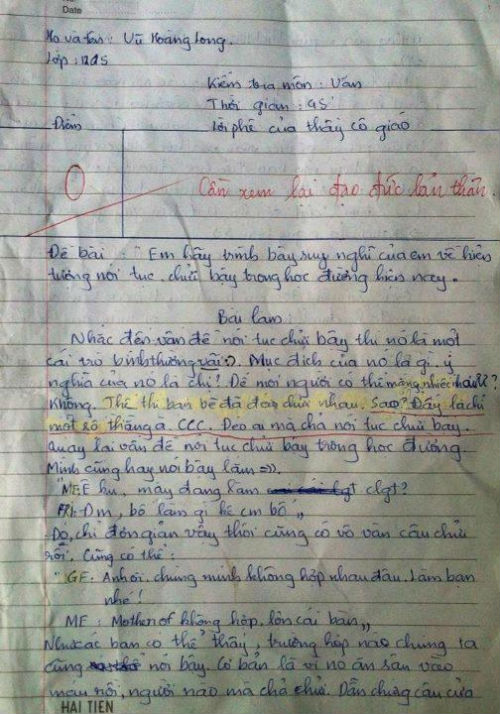 Date
Họ và tên : Vũ Hoàng Long.
Lớp : 12A5
Kiểm tra môn : Văn
Thời gian : 45'
Điểm
Lời phê của thầy cô giáo
0
Cần xem lại đạo đức bản thân.
Đề bài : "Em hãy trình bày suy nghĩ của em về hiện
tượng nói tục, chửi bậy trong học đường hiện nay.
Bài làm
Nhắc đến vấn đề nói tục chửi bậy thì nó là một
cái trò bình thường vãi :). Mục đích của nó là gì, ý
nghĩa của nó là chi! Để mọi người có thể mắng nhiếc nhau ư?
Không. Thế thì bạn bè đã đéo chửi nhau. Sao? Đấy là chỉ
một số thằng ạ. CCC. Đéo ai mà chả nói tục chửi bậy.
Quay lại vấn đề nói tục chửi bậy trong học đường.
Mình cũng hay nói bậy lắm =)).
"ME: Ê ku, mày đang làm clgt?
FRI: Đm, bố làm gì kệ cm bố"
Đó, chỉ đơn giản vậy thôi cũng có vô vàn câu chửi
rồi. Cũng có thể :
"GF: Anh ơi, chúng mình không hợp nhau đâu. Làm bạn
nhé!
ME : Mother of không hợp, lồn cái bàn"
Như các bạn có thể thấy, trường hợp nào chúng ta
cũng nói bậy. Cơ bản là vì nó ăn sâu vào
máu rồi, người nào mà chả chửi. Dẫn chứng câu cửa
HẢI TIẾN